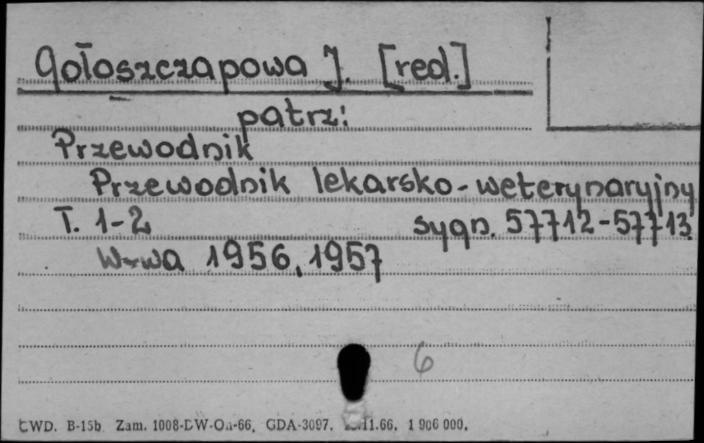 Gołoszczapowa J. [red.]
patrz:
Przewodnik
Przewodnik lekarsko-weterynaryjny
T. 1-2 sygn. 57712-57713
W-wa 1956, 1957
6
CWD. B-15b Zam. 1008-DW-On-66, GDA-3097. 11.66. 1 906 000.